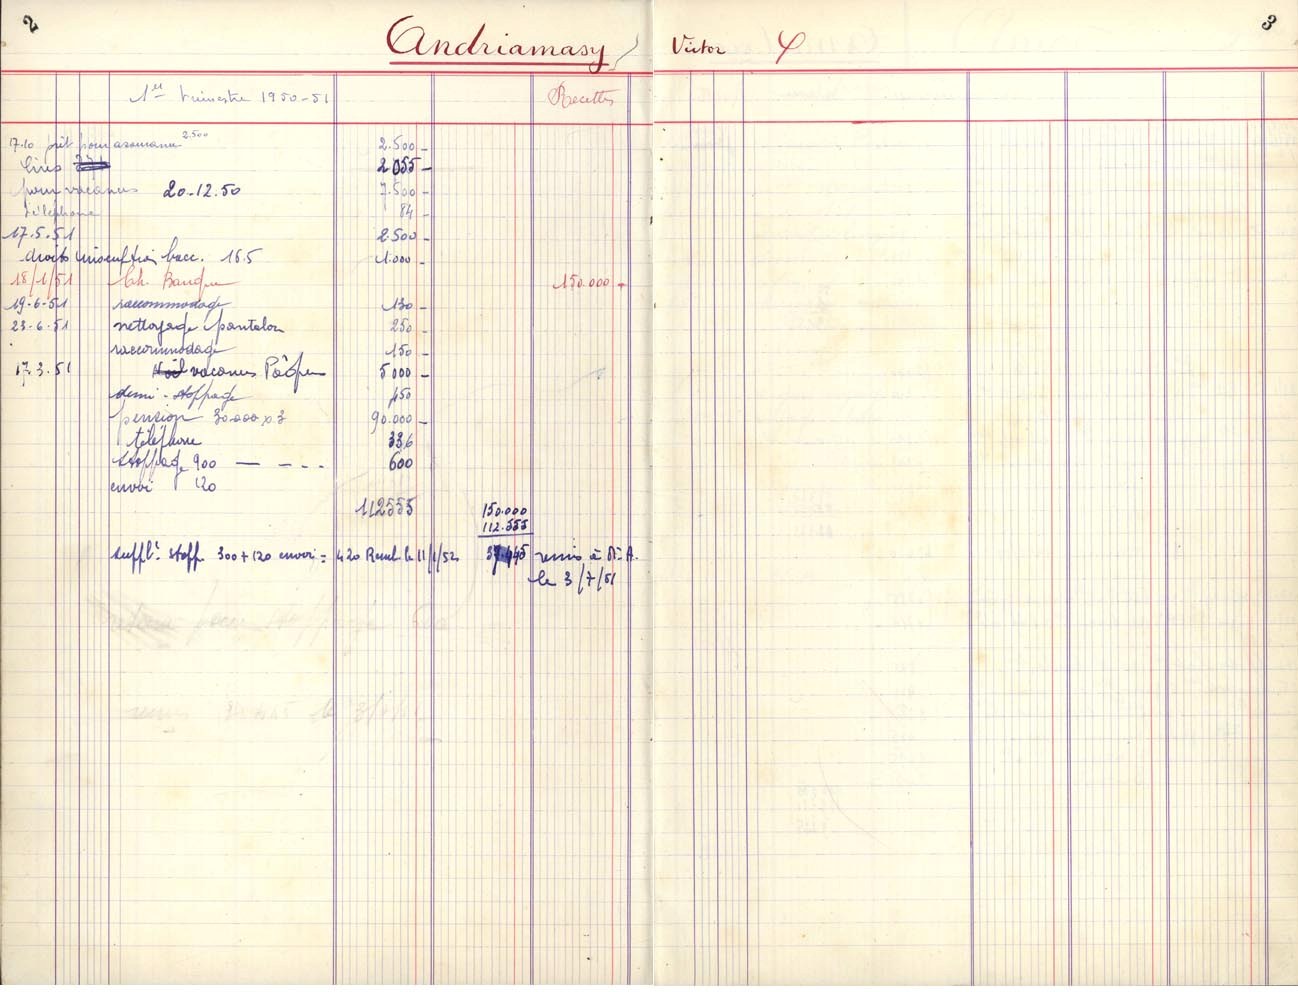 2
3
Andriamasy Victor
1er trimestre 1950-51 Recettes
17.10 prêt pour 2.500 2.500 -
Livres 2055 -
pour vacances 20-12.50 7.500 -
téléphone 84 -
17.5.51 2.500 -
droits inscription bacc. 16.5 1.000 -
18/1/51 Ch. Banque 150.000 -
19-6-51 raccommodage 130 -
23-6.51 nettoyage pantalon 250 -
raccommodage 150 -
17.3.51 Noël vacances Pâques 5000 -
demi-stoppage 450
pension 30.000 x 3 90.000 -
téléphone 336
stoppage 900 — - - - 600
envoi 120
112555 150.000
112.555
suppl. stopp 300 + 120 envoi = 420 Remb. le 11/1/52 37.445 remis à Mr A.
le 3/7/51